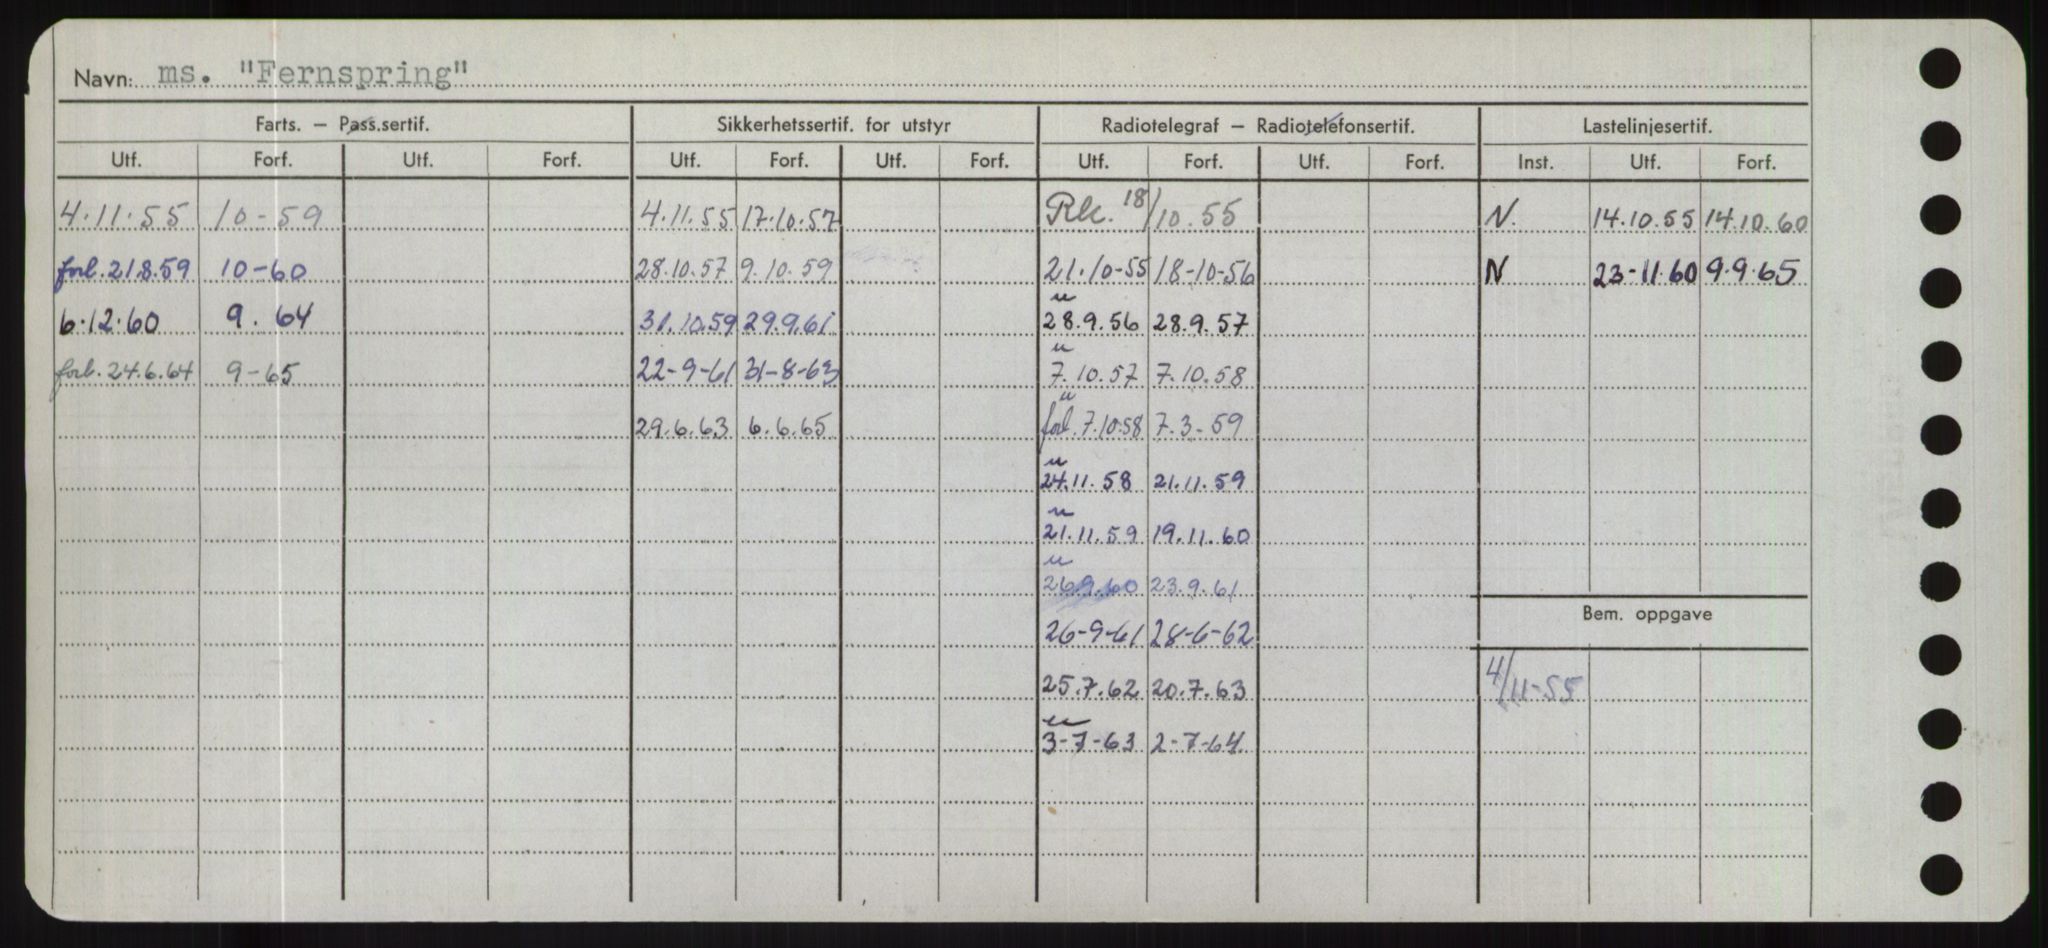 Navn: ms. "Fernspring"
Farts. – Pass.sertif. Sikkerhetssertif. for utstyr Radiotelegraf – Radiotelefonsertif. Lastelinjesertif.
Utf. Forf. Utf. Forf. Utf. Forf. Utf. Forf. Utf. Forf. Utf. Forf. Inst. Utf. Forf.
4.11.55 10-59 4.11.55 17.10.57 Rk. 18/10.55 N. 14.10.55 14.10.60
forl. 21.8.59 10-60 28.10.57 9.10.59 21.10-55 18-10-56 N 23-11.60 9.9.65
u
6.12.60 9.64 31.10.59 29.9.61 28.9.56 28.9.57
u
forl. 24.6.64 9-65 22-9-61 31-8-63 7.10.57 7.10.58
u
29.6.63 6.6.65 forl. 7.10.58 7.3-59
u
24.11.58 21.11.59
u
21.11.59 19.11.60
u
26.9.60 23.9.61
Bem. oppgave
26-9-61 28-6-62
25.7.62 20.7.63 4/11-55
u
3-7-63 2-7-64